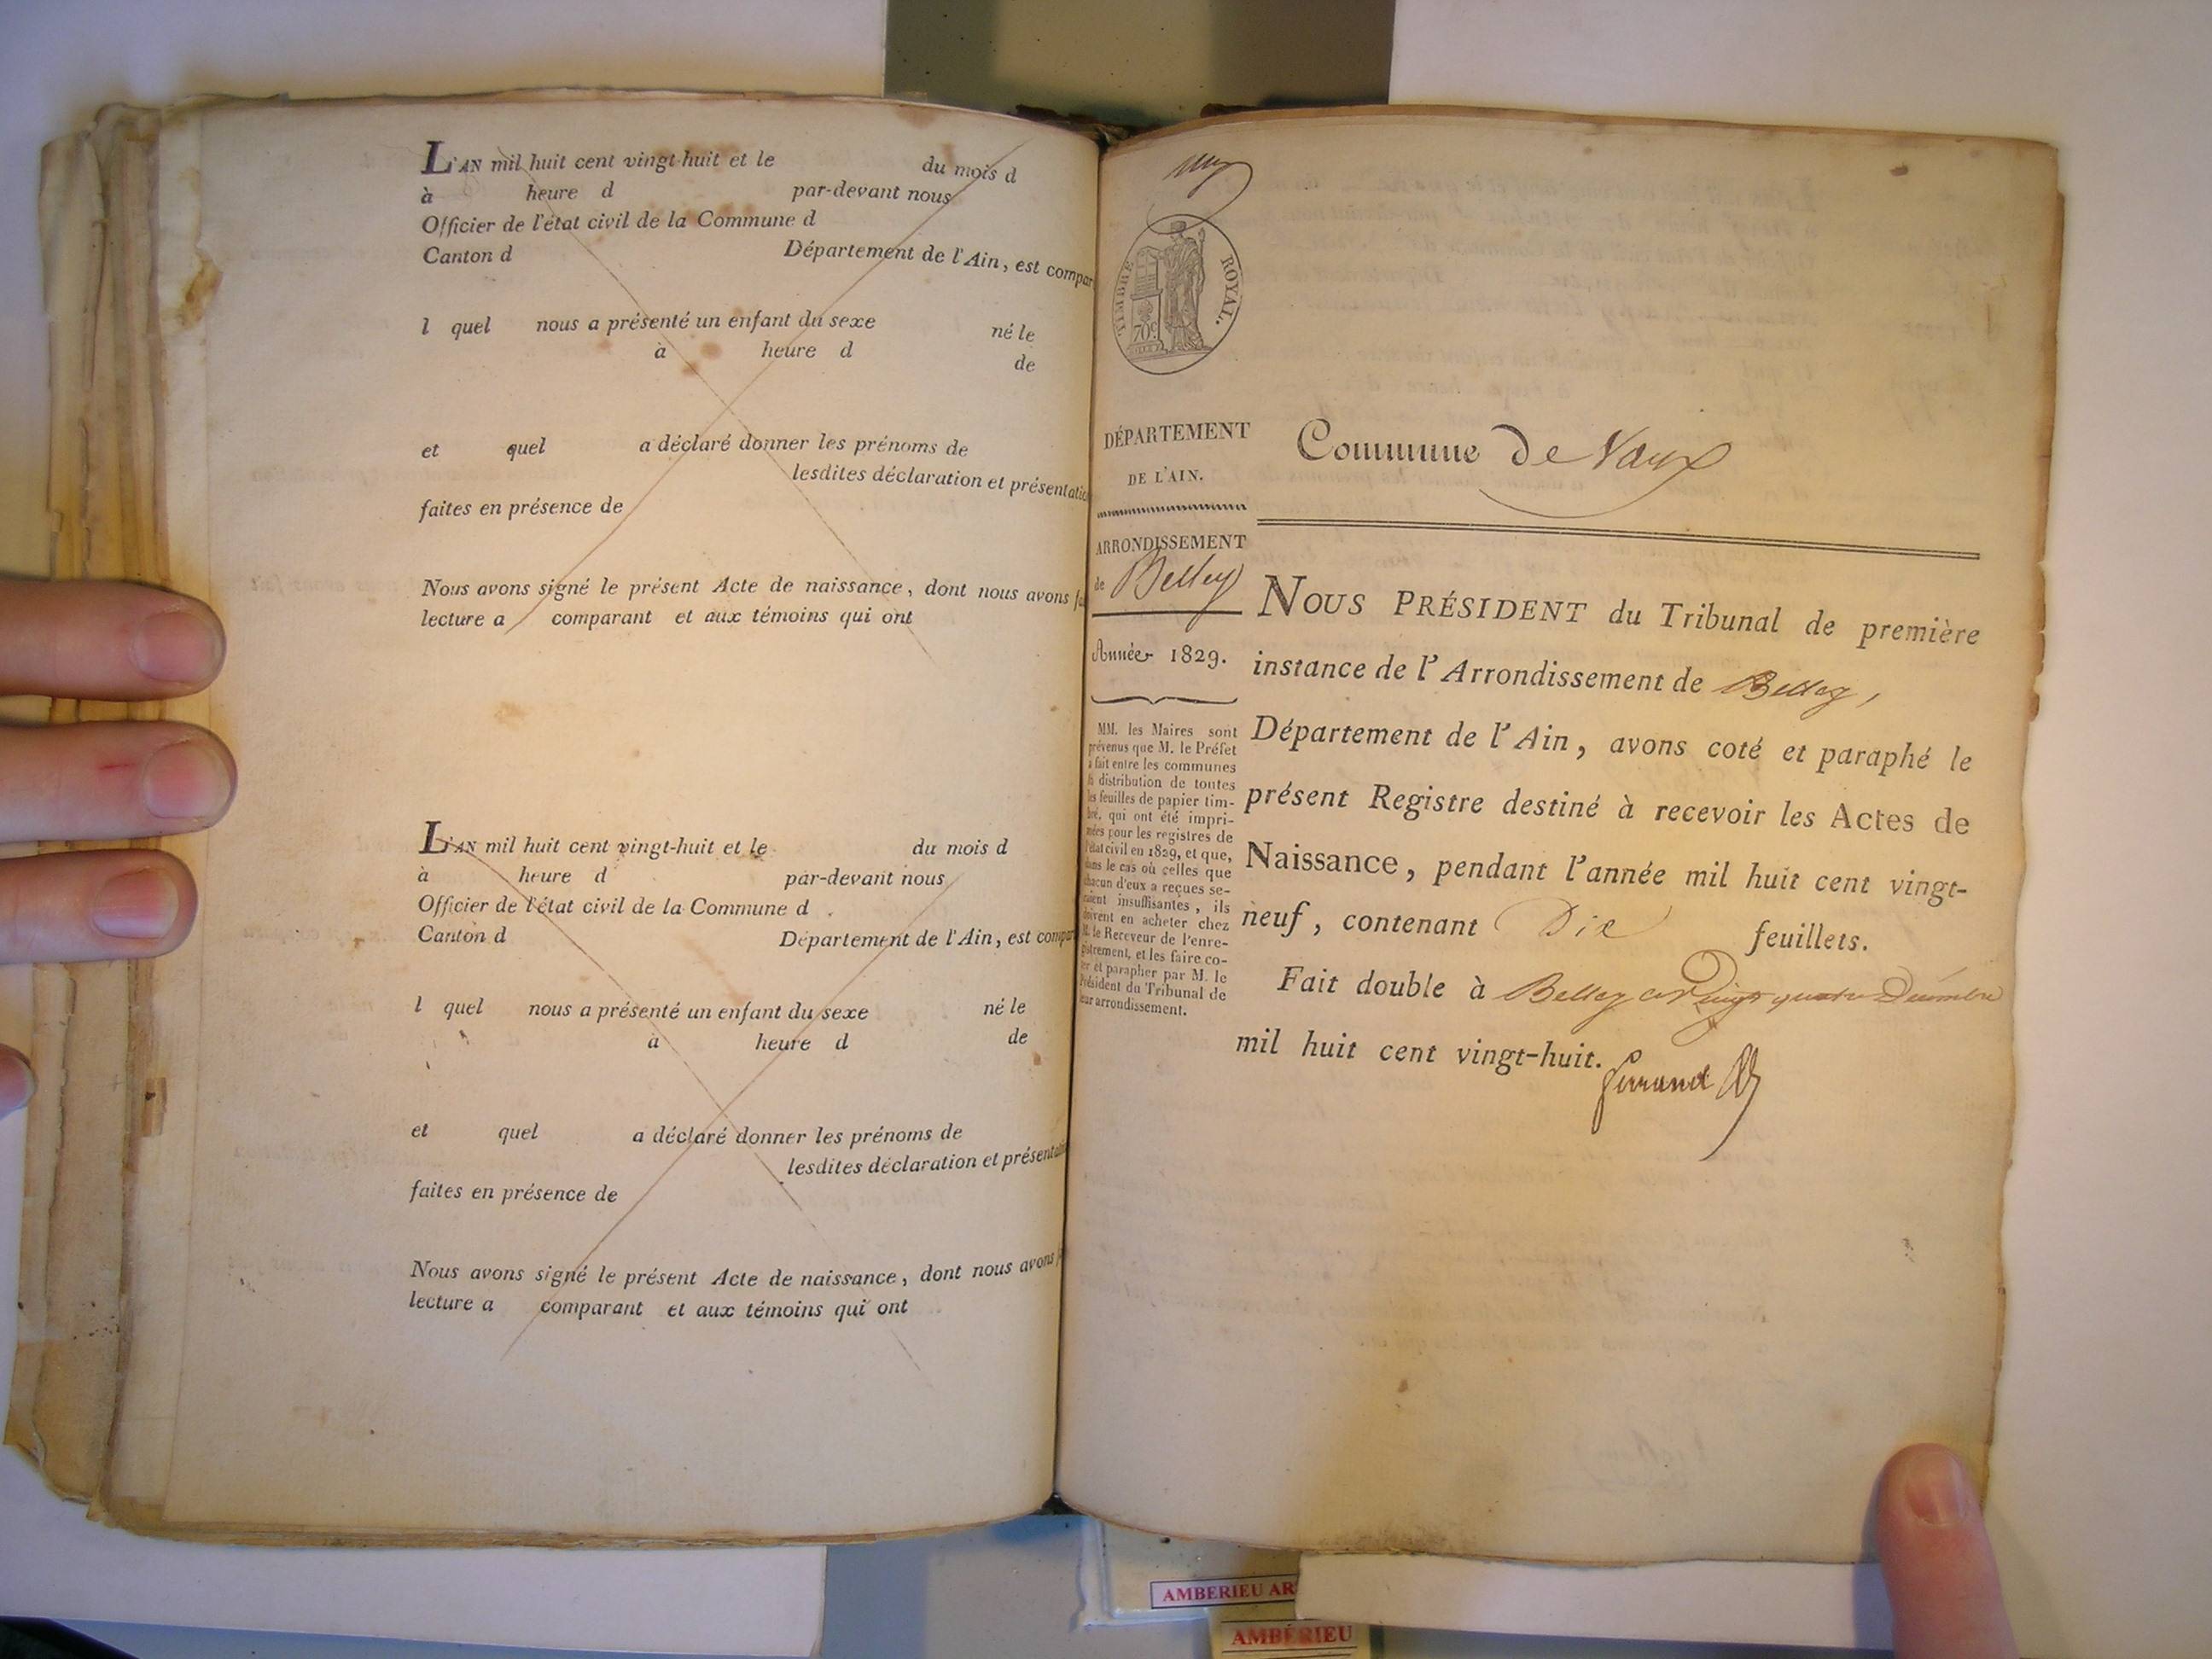 L'AN mil huit cent vingt-huit et le du mois d
à heure d par-devant nous
Officier de l'état civil de la Commune d
Canton d Département de l'Ain, est compar
l quel nous a présenté un enfant du sexe né le
à heure d de
et quel a déclaré donner les prénoms de
lesdites déclaration et présentatio
faites en présence de
Nous avons signé le présent Acte de naissance, dont nous avons fa
lecture a comparant et aux témoins qui ont
L'AN mil huit cent vingt-huit et le du mois d
à heure d par-devant nous
Officier de l'état civil de la Commune d
Canton d Département de l'Ain, est compar
l quel nous a présenté un enfant du sexe né le
à heure d de
et quel a déclaré donner les prénoms de
lesdites déclaration et présentatio
faites en présence de
Nous avons signé le présent Acte de naissance, dont nous avons f
lecture a comparant et aux témoins qui ont
TIMBRE ROYAL.
70c
DÉPARTEMENT
DE L'AIN.
ARRONDISSEMENT
de Belley
Année 1829.
MM. les Maires sont
prévenus que M. le Préfet
a fait entre les communes
la distribution de toutes
les feuilles de papier tim-
bré, qui ont été impri-
mées pour les registres de
l'état civil en 1829, et que,
dans le cas où celles que
chacun d'eux a reçues se-
raient insuffisantes, ils
doivent en acheter chez
M. le Receveur de l'enre-
gistrement, et les faire co-
ter et parapher par M. le
Président du Tribunal de
leur arrondissement.
Commune De Vaux
NOUS PRÉSIDENT du Tribunal de première
instance de l'Arrondissement de Belley,
Département de l'Ain, avons coté et paraphé le
présent Registre destiné à recevoir les Actes de
Naissance, pendant l'année mil huit cent vingt-
neuf, contenant Dix feuillets.
Fait double à Belley ce Vingt quatre Décembre
mil huit cent vingt-huit.
AMBERIEU AR
AMBÉRIEU